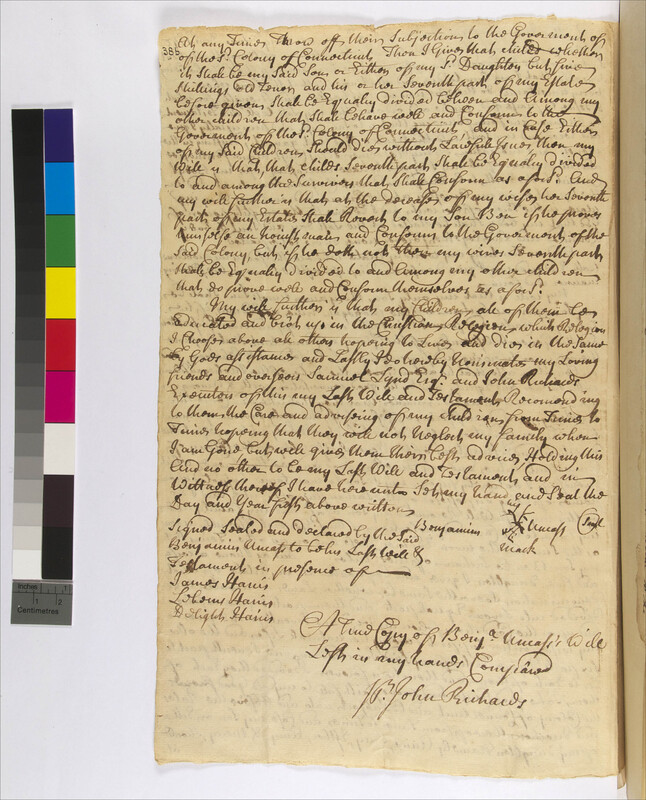 386
At any Time Throw off their Subjection to the Government of
of the sd. Colony of Connecticut Then I Give that child whether
it Shall be my Said Son or Either of my sd. Daughters but five
Shillings old Tenor and his or her Seventh part of my Estate
before given Shall be Equally divided between and Among my
other children that Shall behave well and Conform to the
Government of the sd. Colony of Connecticut and in Case Either
of my Said Children Should Die without Lawfull Issue then my
Will is that, that childs Seventh part Shall be Equally Divided
to and among the Survivors that Shall Conform as afors.d And
my will further is that at the decease of my wife her Seventh
part of my Estate Shall Revert to my Son Ben if he proves
himselfe an honest man and Conform to the Government of the
Said Colony, but if he doth not then my wives Seventh part
Shall be Equally divided to and Among my other children
that do prove well and Conform themselves as afors.d
My will further is that my Children all of them be
Educated and brot up in the Christian Religion which Religion
I Choose above all others hoping to Live and Die in the Same
by Gods assistance and Lastly I do hereby Nominate my Loving
friends and overseers Samuel Lynd Esq.r and John Richards
Executors of this my Last Will and Testament Recomending
to them the Care and advising of my Children from Time to
Time hoping that they will not Neglect my family when
I am Gone but will give them their best advice Holding this
And no other to be my Last Will and Testament and in
Wittness thereof I have here unto Set my hand and Seal the
Day and Year first above written
Signed Sealed and declared by the Said
Benjamin his Uncass Seal
mark
Benjamin Uncass to be his Last Will &
Testament in presence of
James Harris
Lebeus Harris
Delight Harris
A true Copy of Benj.a Uncass's Will
Left in my hands Compared
Pr. John Richards
Inches 1 2
Centimetres